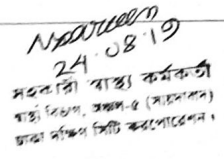 Nasreen
24.08.19
সহকারী স্বাস্থ্য কর্মকর্তা
স্বাস্থ্য বিভাগ, অঞ্চল-৫ (সায়েদাবাদ)
ঢাকা দক্ষিণ সিটি কর্পোরেশন।